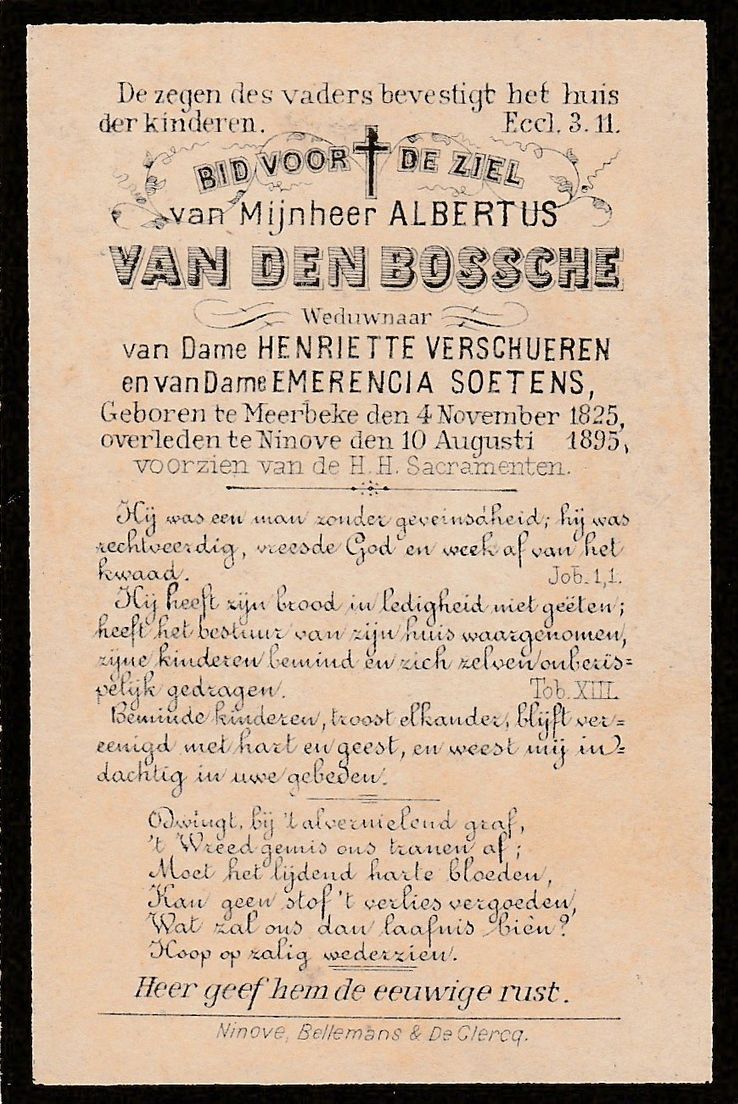 De zegen des vaders bevestigt het huis
der kinderen. Eccl. 3. 11.
BID VOOR DE ZIEL
van Mijnheer ALBERTUS
VAN DEN BOSSCHE
Weduwnaar
van Dame HENRIETTE VERSCHUEREN
en van Dame EMERENCIA SOETENS,
Geboren te Meerbeke den 4 November 1825,
overleden te Ninove den 10 Augusti 1895,
voorzien van de H. H. Sacramenten.
Hij was een man zonder geveinsdheid; hij was
rechtveerdig, vreesde God en week af van het
kwaad. Job. 1,1.
Hij heeft zijn brood in ledigheid niet geëten;
heeft het bestuur van zijn huis waargenomen,
zijne kinderen bemind en zich zelven onberis=
pelijk gedragen. Tob. XIII.
Beminde kinderen, troost elkander, blijft ver=
eenigd met hart en geest, en weest mij in=
dachtig in uwe gebeden.
Odwingt, bij 't alvernielend graf,
't Wreed gemis ons tranen af;
Moet het lijdend harte bloeden,
Kan geen stof 't verlies vergoeden,
Wat zal ons dan laafnis biên?
Hoop op zalig wederzien.
Heer geef hem de eeuwige rust.
Ninove, Bellemans & De Clercq.